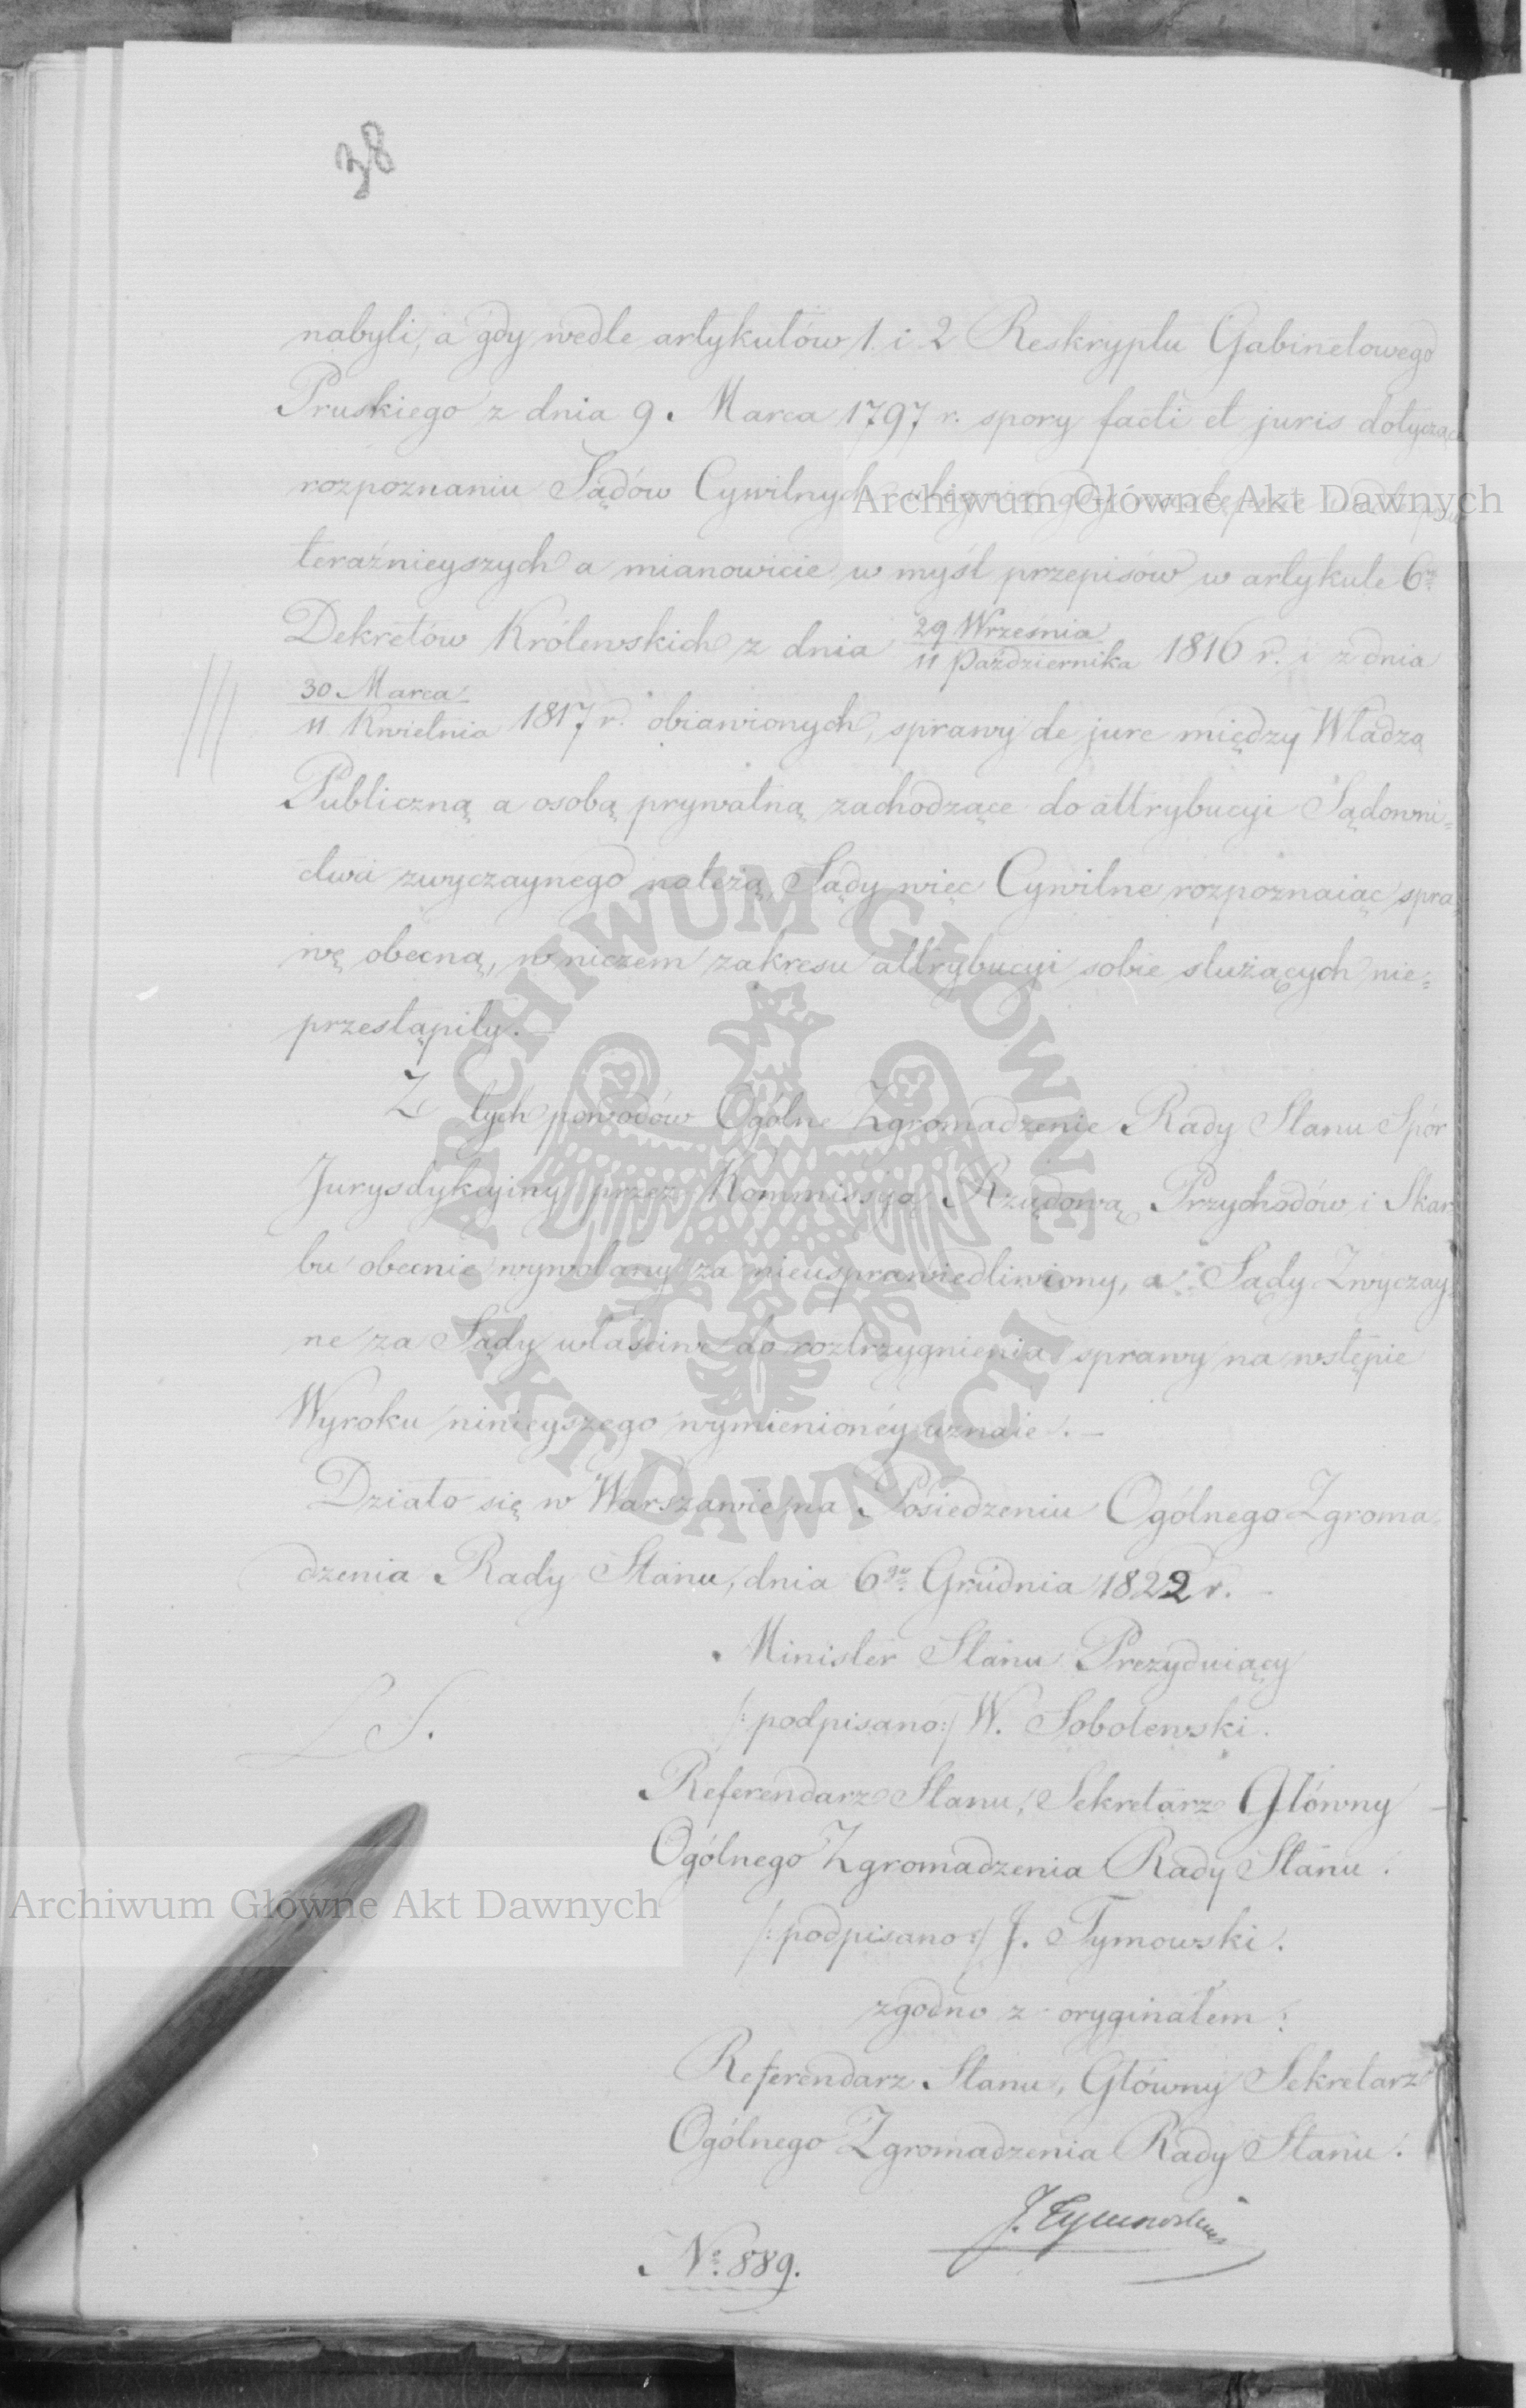 38
nabyli, a gdy wedle artykułów 1. i 2 Reskryptu Gabinetowego
Pruskiego z dnia 9. Marca 1797 r. spory facti et juris dotyczące
rozpoznaniu Sądów Cywilnych
Archiwum Główne Akt Dawnych
teraźnieyszych a mianowicie w myśl przepisów w artykule 6m
Dekretów Królewskich z dnia 29 Września / 11 Października 1816 r. i z dnia
30 Marca / 11 Kwietnia 1817 r. obiawionych, sprawy de jure między Władzą
Publiczną a osobą prywatną zachodzące do attrybucyi Sądowni=
ctwa zwyczaynego należą, Sądy więc Cywilne rozpoznaiąc spra=
wę obecną, w niczem zakresu attrybucyi sobie służących nie=
przestąpiły. –
Z tych powodów Ogólne Zgromadzenie Rady Stanu Spór
Jurysdykcyiny przez Kommissyą Rządową Przychodów i Skar=
bu obecnie wywołany za nieusprawiedliwiony, a Sądy Zwyczay=
ne za Sądy właściwe do roztrzygnienia sprawy na wstępie
Wyroku ninieyszego wymienionéy uznaie. –
Działo się w Warszawie na Posiedzeniu Ogólnego Zgroma=
dzenia Rady Stanu, dnia 6go Grudnia 1822 r. –
Minister Stanu Prezyduiący
L S.
/:podpisano:/ W. Sobolewski.
Referendarz Stanu, Sekretarz Główny
Ogólnego Zgromadzenia Rady Stanu.
Archiwum Główne Akt Dawnych
/:podpisano:/ J. Tymowski.
zgodno z oryginałem:
Referendarz Stanu, Główny Sekretarz
Ogólnego Zgromadzenia Rady Stanu.
J. Tymowski
No. 889.
ARCHIWUM GŁÓWNE AKT DAWNYCH